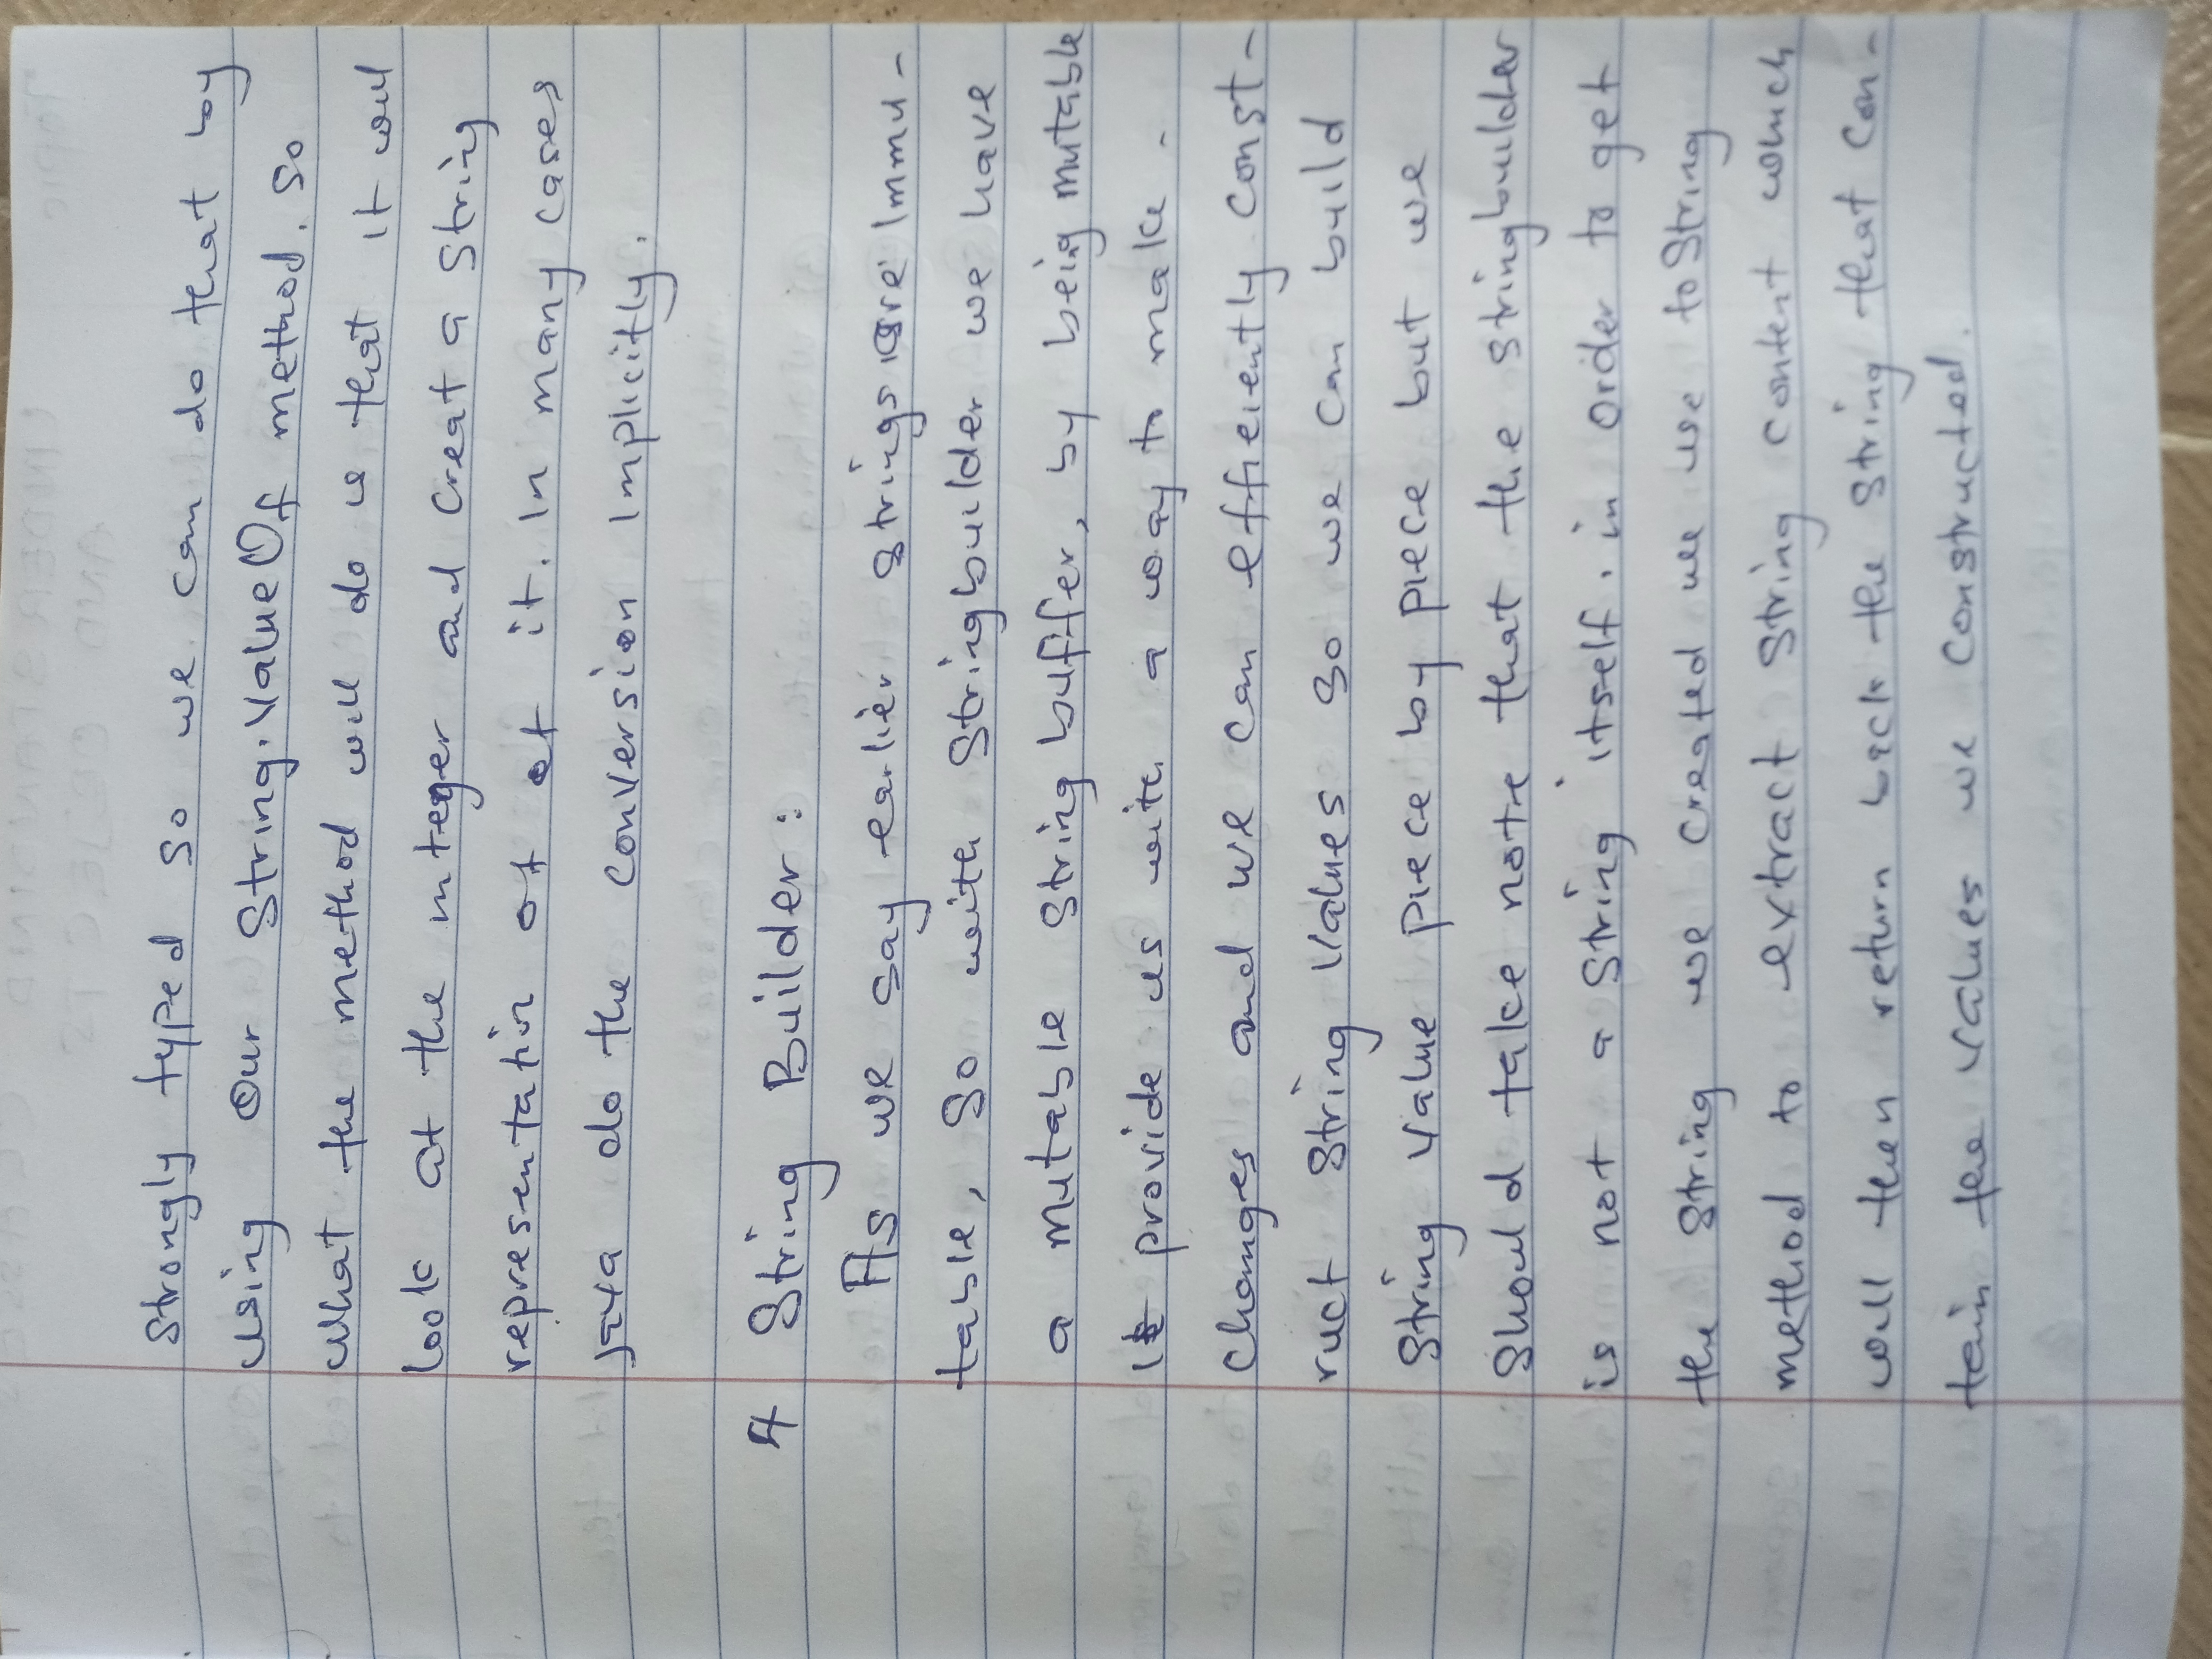 strongly typed so we can do that by
using our String.ValueOf method. so
what the method will do is that it will
look at the integer and creat a string
representation of of it. In many cases
java do the conversion implicitly.
4 String Builder:
As we say earlier strings are Immu-
table, so with Stringbuilder we have
a mutable string buffer, by being mutable
It provide us with a way to make -
changes and we can efficiently const-
ruct string values so we can build
string value piece by piece but we
should take note that the stringbuilder
is not a string itself. in order to get
the string we created we use toString
method to extract string content which
will then return back the string that con-
tain the values we constructed.